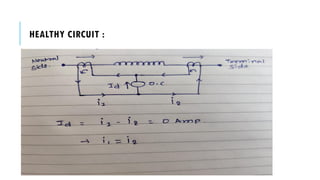 HEALTHY CIRCUIT :
Neutral Side
Terminal Side
Id O.C
i1 i2
Id = i1 - i2 = 0 Amp.
→ i1 = i2